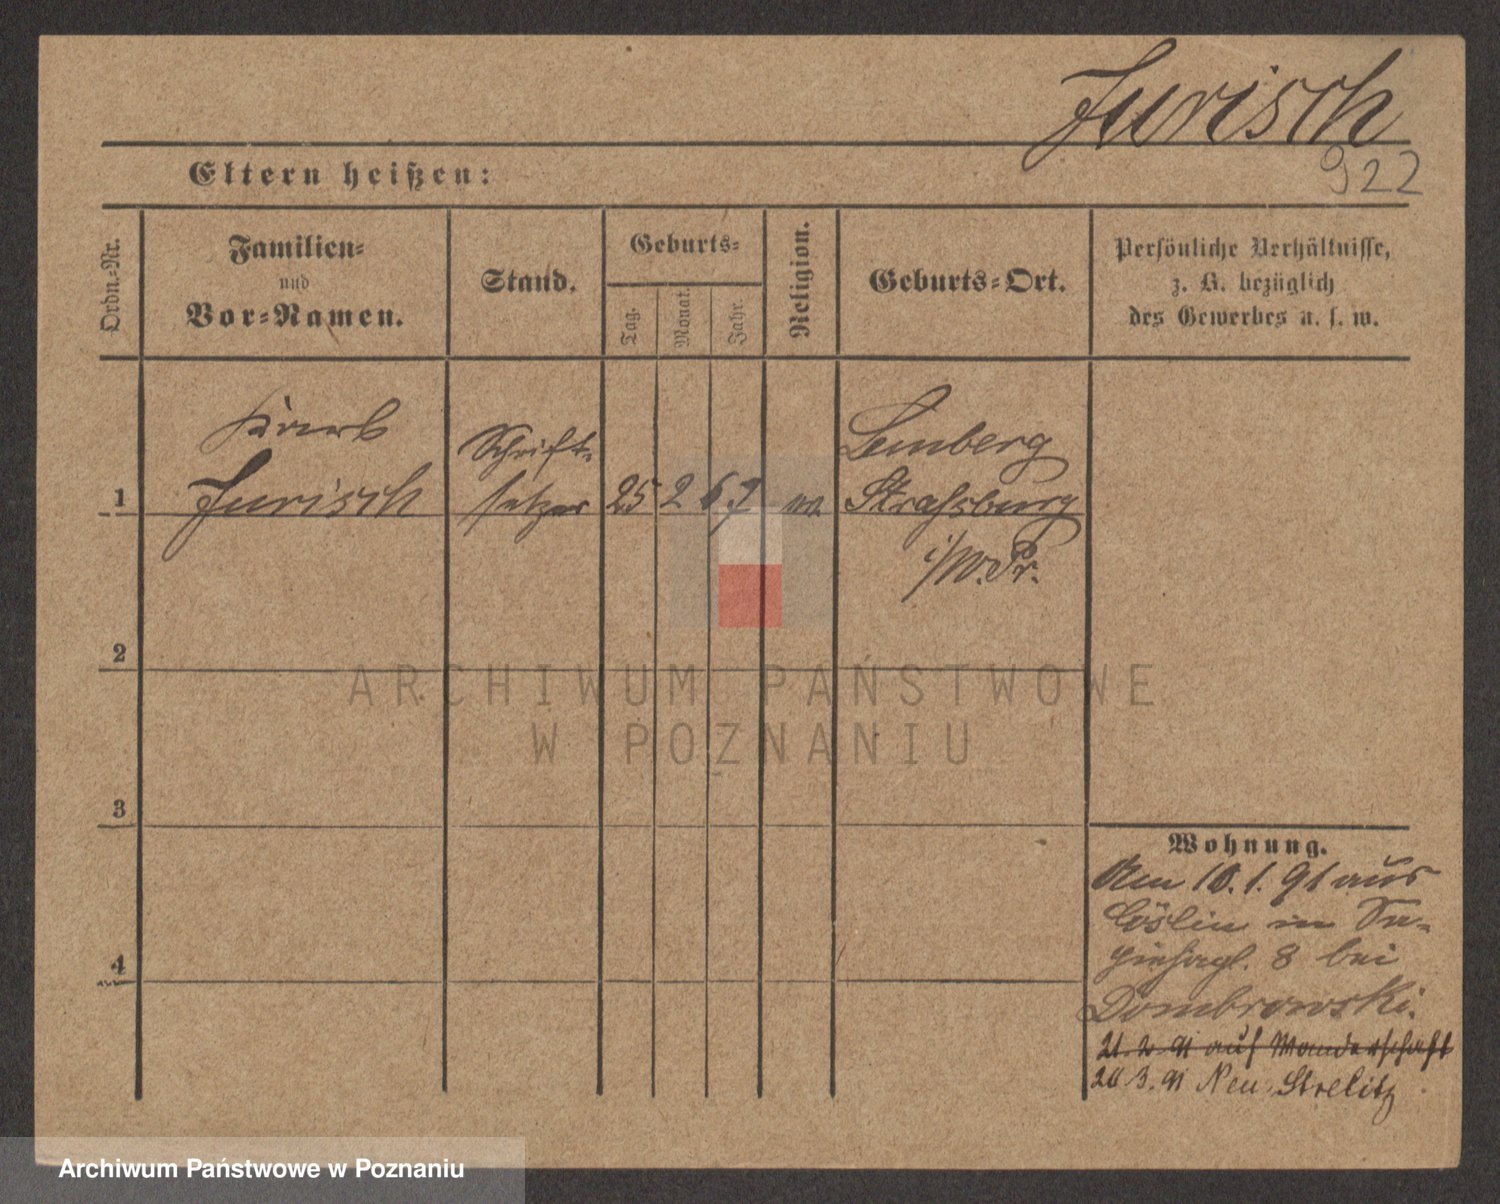 Jurisch
922
Eltern heißen:
Ordn.-Nr.
Familien-
und
Vor-Namen.
Stand.
Geburts-
Tag.
Monat.
Jahr.
Religion.
Geburts-Ort.
Persönliche Verhältnisse,
z. B. bezüglich
des Gewerbes u. s. w.
1
Jurisch
Schrift-
setzer
25
2
67
Lemberg
Strassburg
i/W. Pr.
2
3
4
Wohnung.
Am 10.1.91 aus
Cöslin in
8 bei
Dombrowski.
21.2.91 auf Wanderschaft
20.3.91 Neu Strelitz
ARCHIWUM PAŃSTWOWE
W POZNANIU
Archiwum Państwowe w Poznaniu